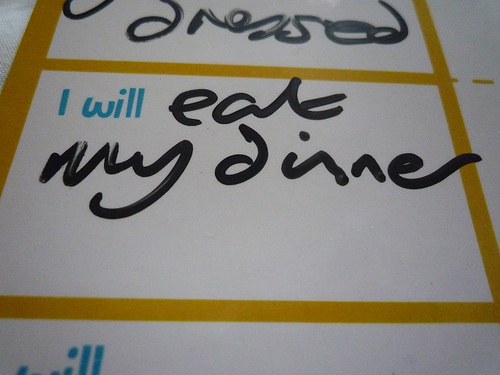 dressed
I will eat
my dinner
will